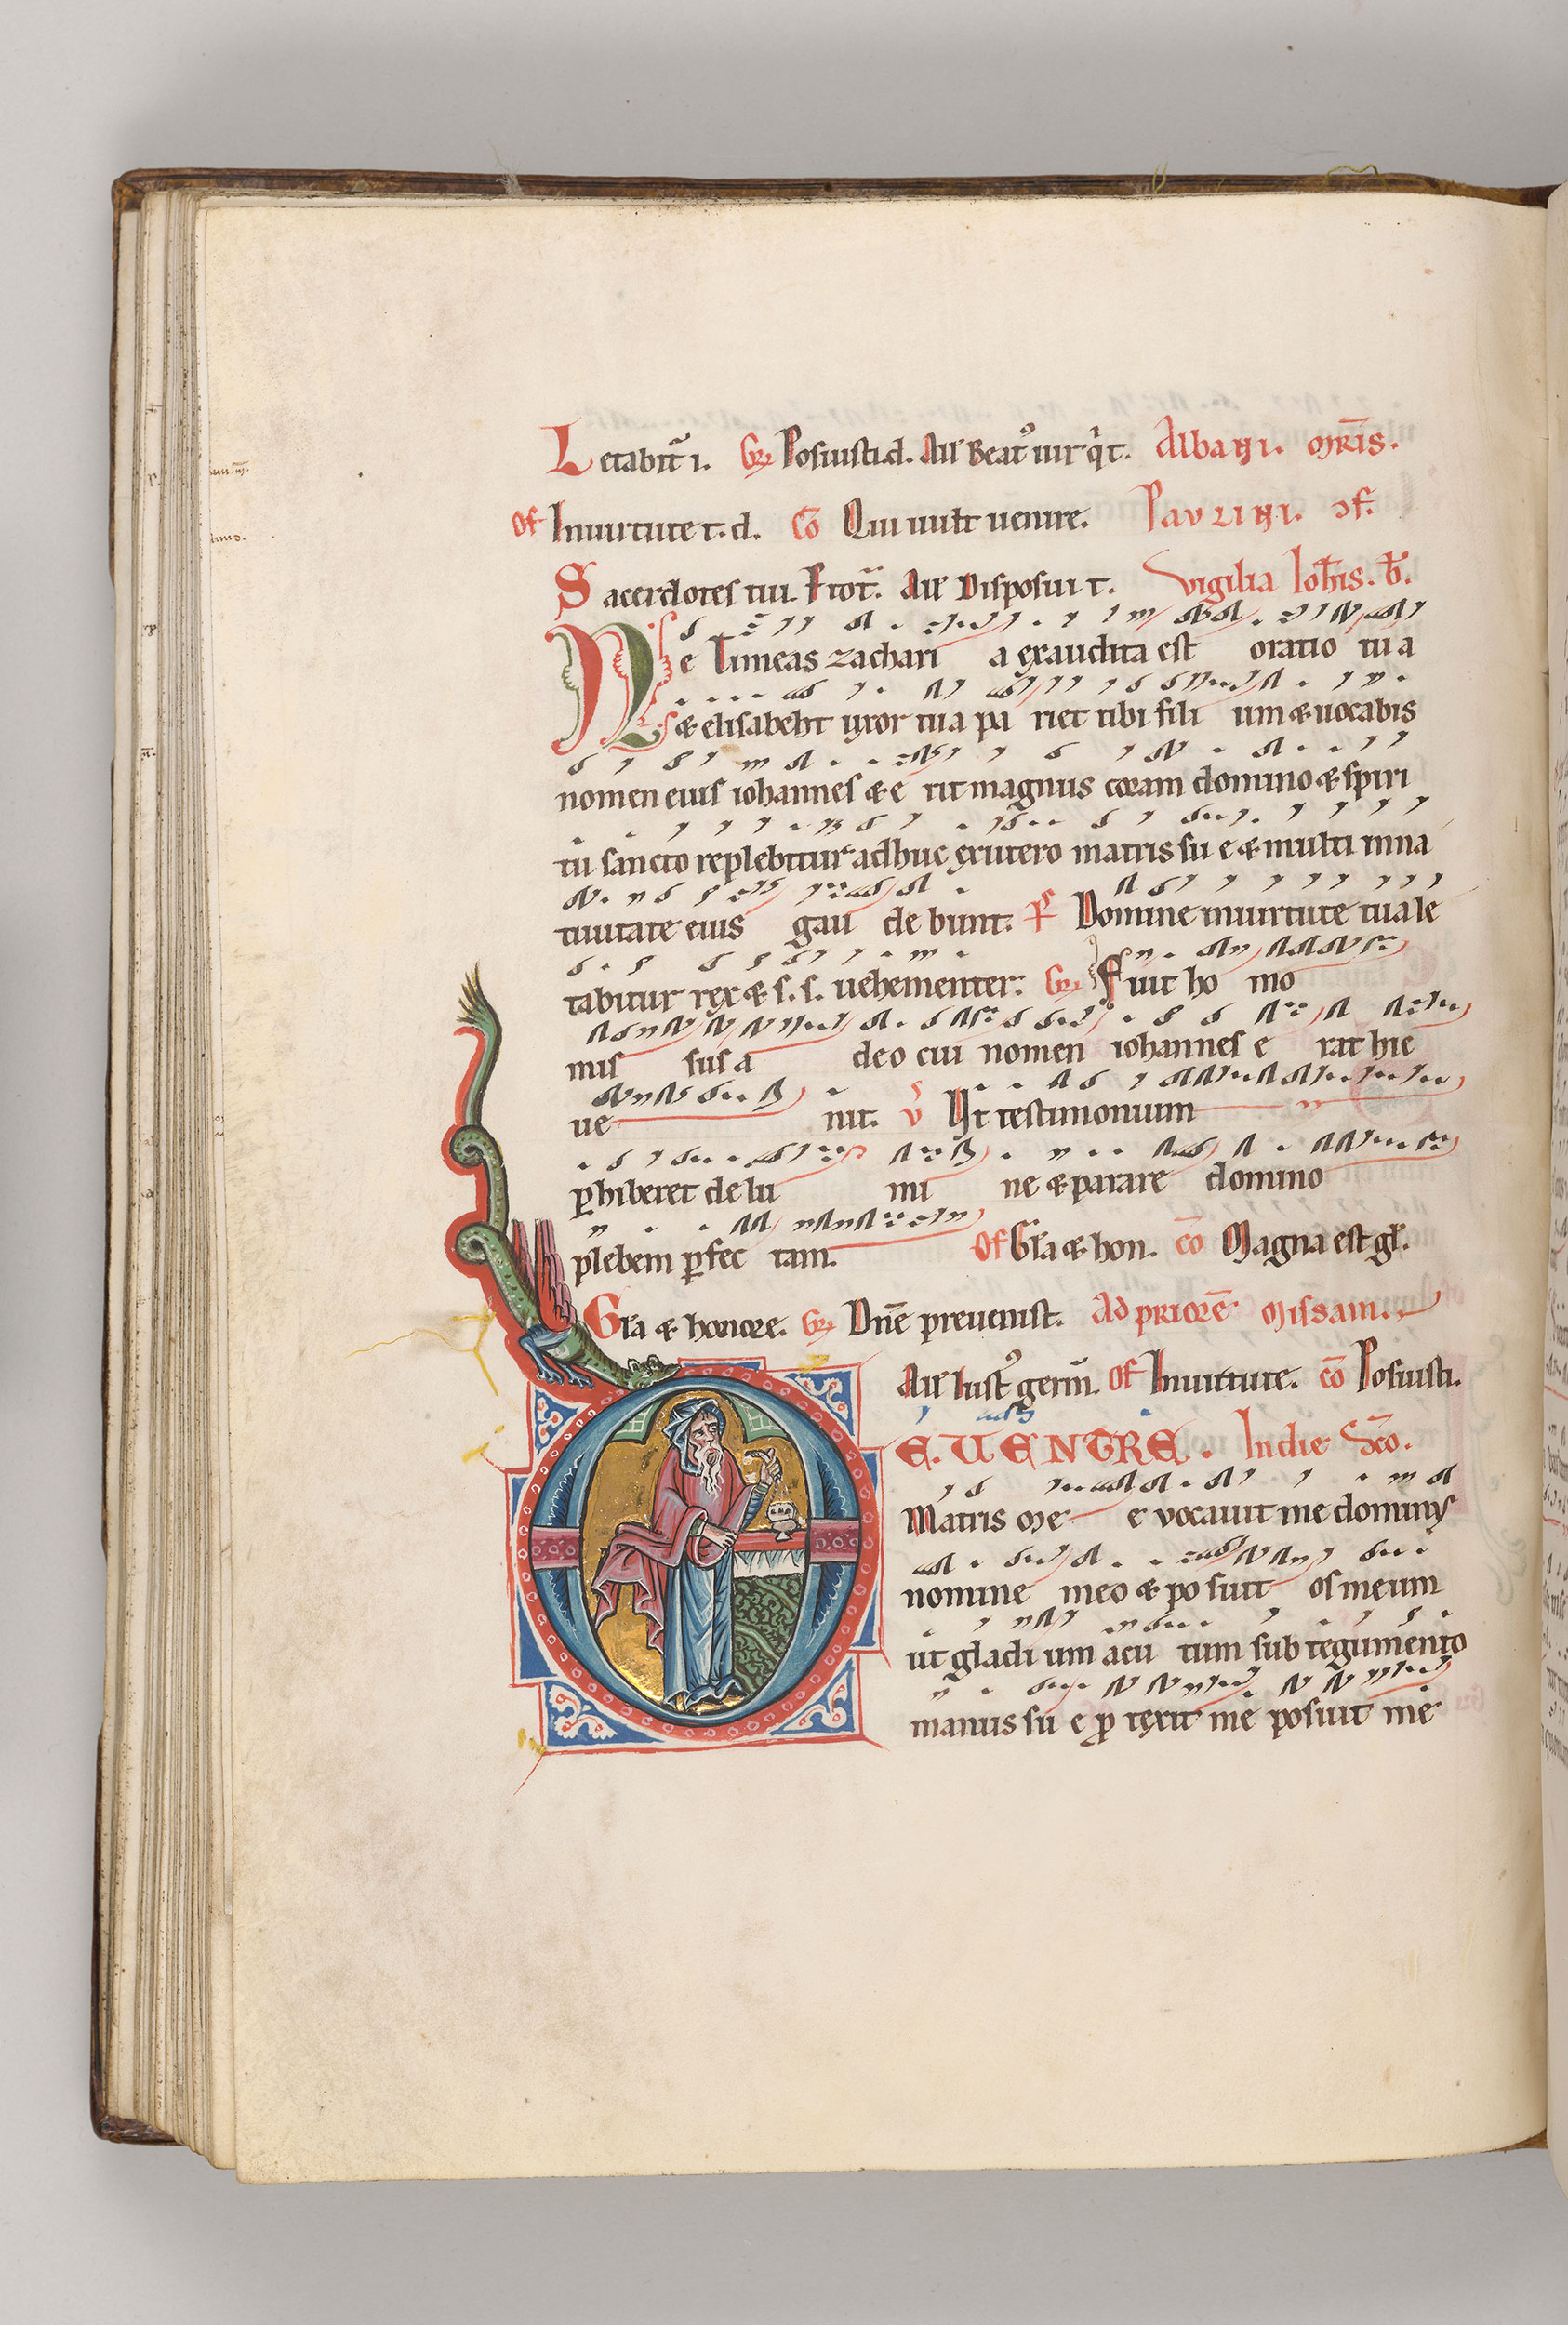 Letabit̄ i. Gr̄ Posuisti. d. All̄ Beat᷒ uir q̇ t. Albani. mr̄is.
Of Inuirtute t. d. Cō Qui uult uenire. Paulini. ↄf.
Sacerdotes tui. P̄ tot̄. All̄ Disposui t. Vigilia Ioh̄is. b̄.
Ne timeas zachari a exaudita est oratio tua
& elisabeht uxor tua pa riet tibi fili um & uocabis
nomen eius iohannes & e rit magnus coram domino & spiri
tu sancto replebitur adhuc exutero matris su e & multi inna
tiuitate eius gau de bunt. P̄s Domine inuirtute tua le
tabitur rex & s. s. uehementer. Gr̄ Fuit ho mo
mis sus a deo cui nomen iohannes e rat hic
ue nit. v̄ Vt testimonium
ꝑhiberet de lu mi ne & parare domino
plebem ꝑfec tam. Of Gl̄a & hon. cō Magna est gl̄.
Gl̄a & honore. Gr̄ Dn̄e preuenist. Ad priorē missam.
All̄ Iust᷒ germ̄. Of Inuirtute. cō Posuisti.
DE. VENTRE. In die sc̄o.
Matris me e vocauit me dominus
nomine meo & po suit os meum
ut gladi um acu tum sub tegumento
manus su e ꝓ texit me posuit me